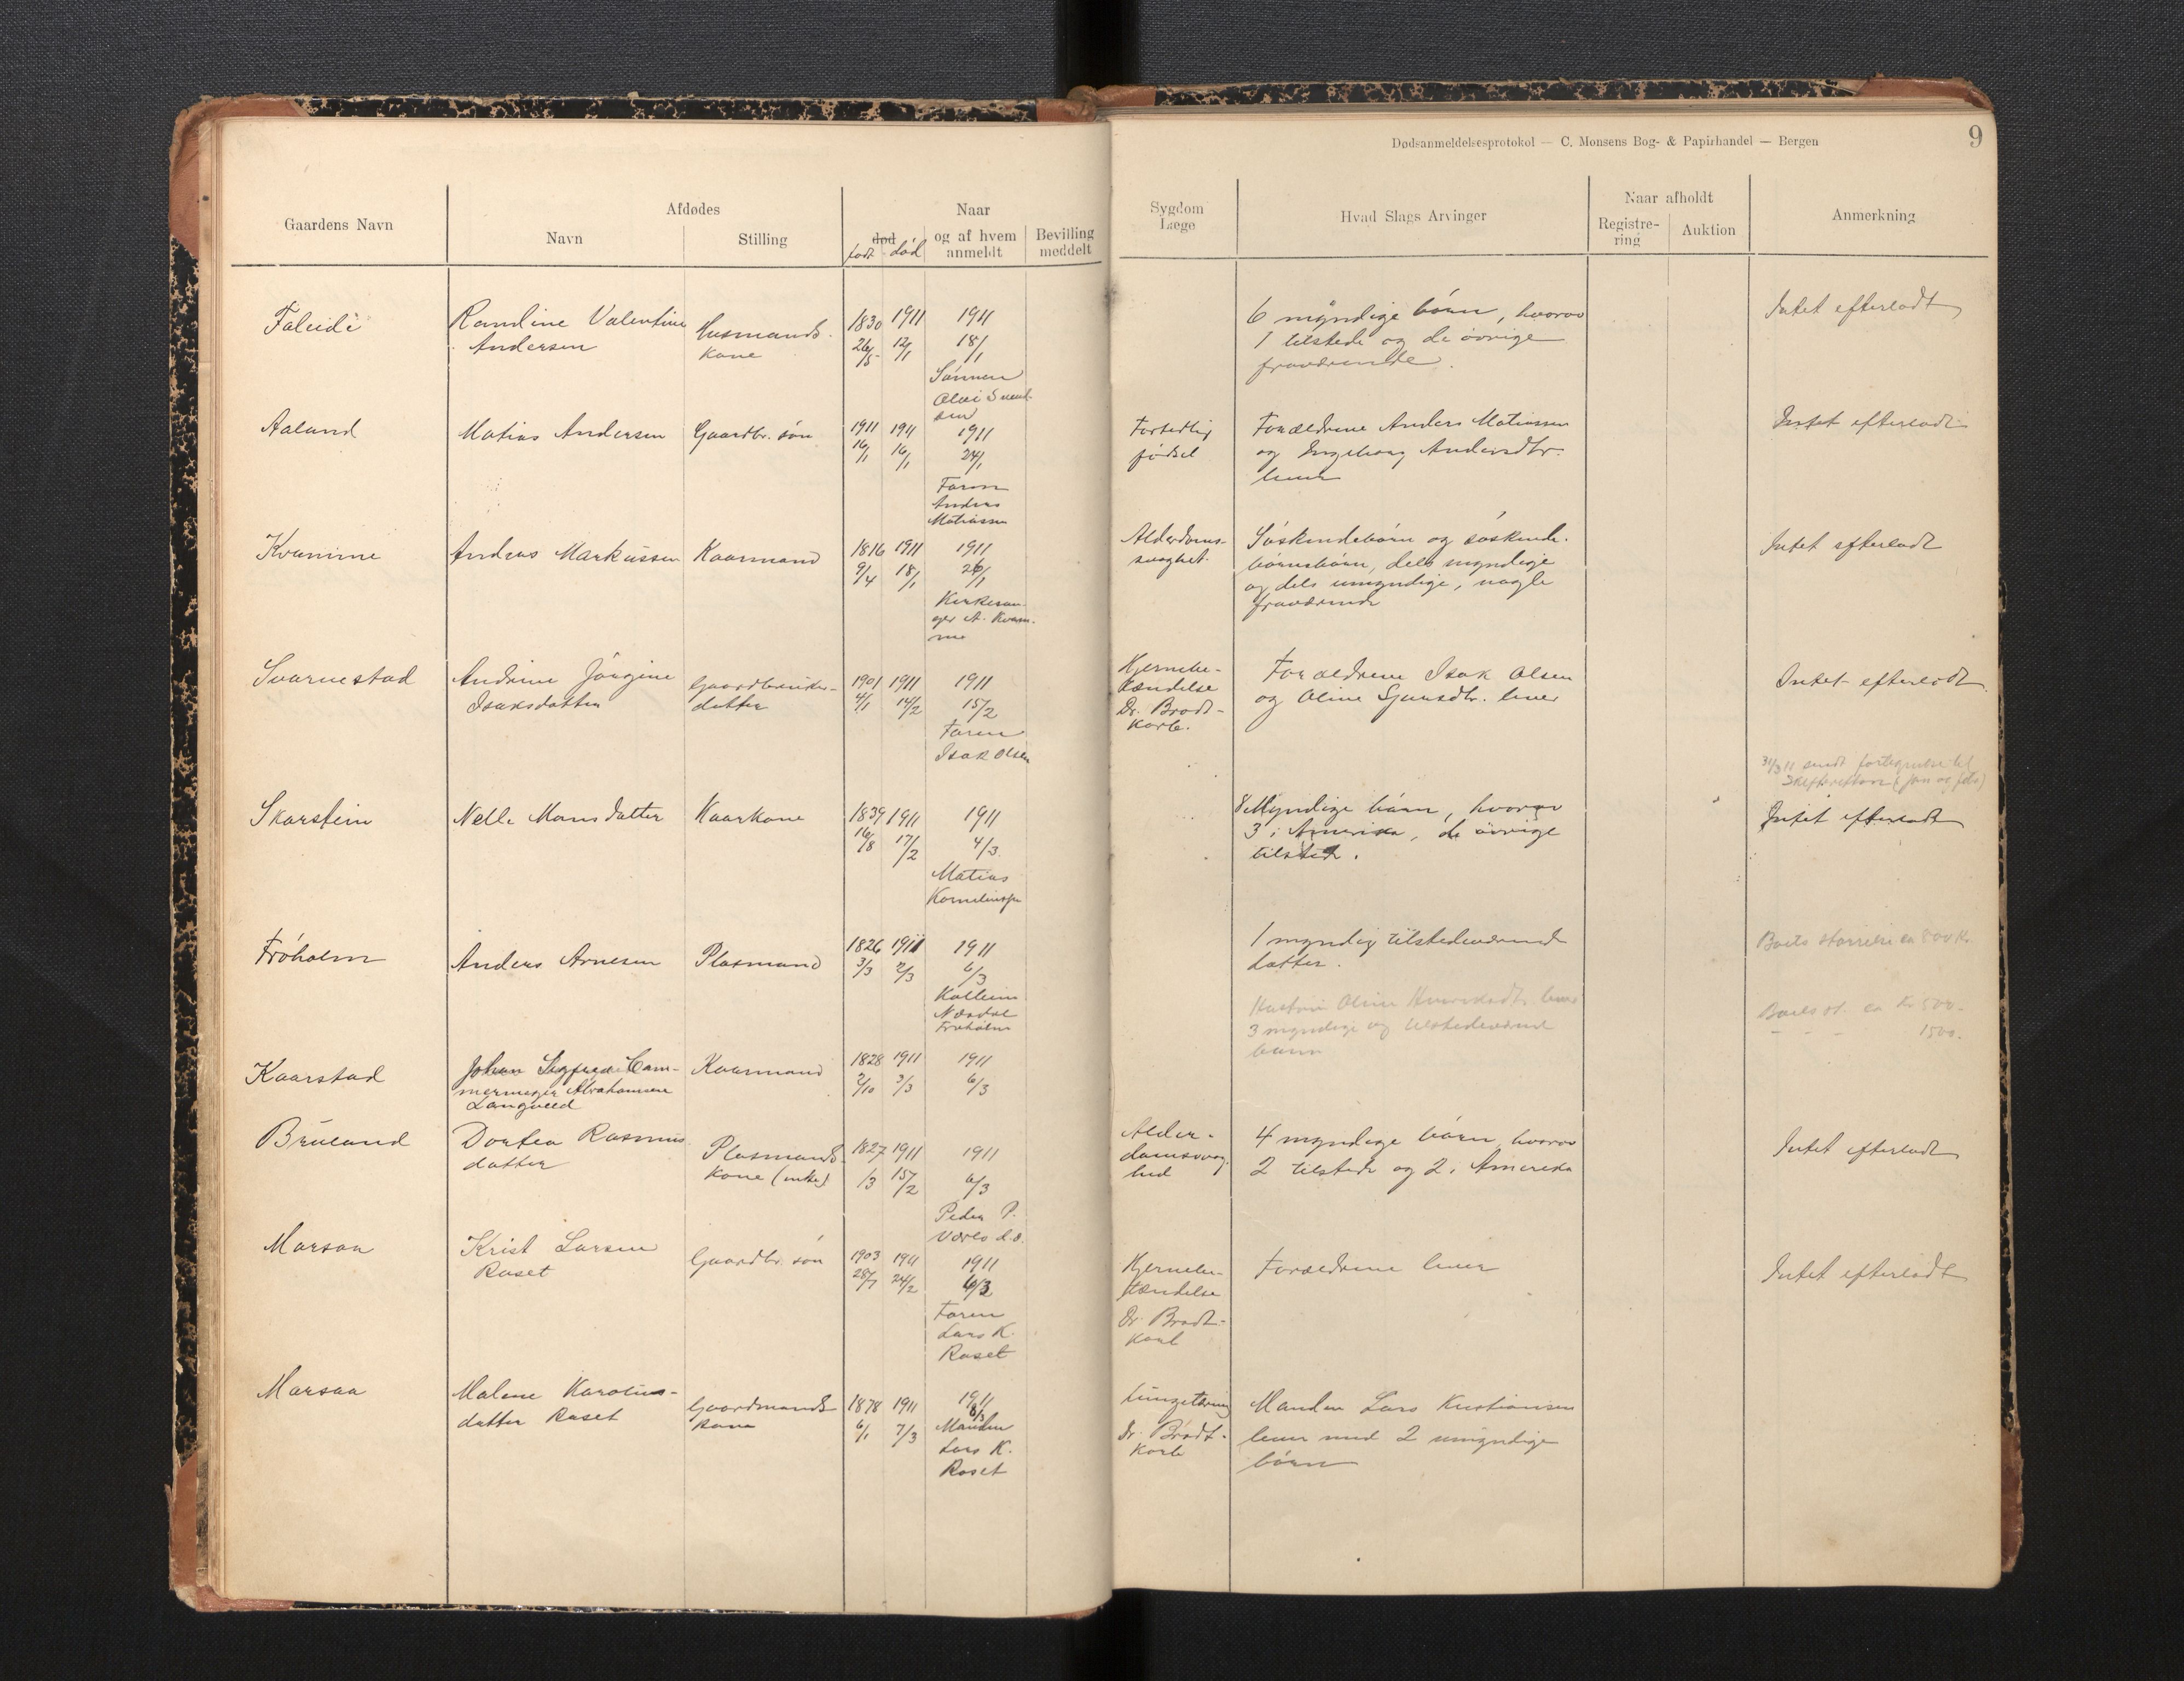 Dødsanmeldelsesprotokol — C. Monsens Bog- & Papirhandel — Bergen
9
Gaardens Navn
Afdødes
Navn
Stilling
Naar
død
født
død
og af hvem
anmeldt
Bevilling
meddelt
Sygdom
Læge
Hvad Slags Arvinger
Naar afholdt
Registre-
ring
Auktion
Anmerkning
Faleide
Randine Valentine
Andersen
Husmands-
kone
1830 1911 1911
26/5 12/1 18/1
Sønnen
6 myndige børn, hvorav
1 tilstede og de øvrige
fraværende
Intet efterladt
Aaland
Matias Andersen
Gaardbr. søn
1911 1911 1911
16/1 16/1 24/1
Faren
Anders
Matiassen
Fortidlig
fødsel
Forældrene Anders Matiassen
og Ingeborg Andersdtr.
lever
Intet efterladt
Kvamme
Andreas Markussen
Kaarmand
1816 1911 1911
9/4 18/1 26/1
Kirkesan-
ger A. Kvam-
me
Alderdoms-
svaghet.
Søskendebørn og søskende-
børnsbørn, dels myndige
og dels umyndige, nogle
fraværende
Intet efterladt
Svarnestad
Andrine Jørgine
Isaksdatter
Gaardbruker-
datter
1901 1911 1911
4/1 14/2 15/2
Faren
Isak Olsen
Hjernebe-
tændelse
Dr. Brodt-
korb.
Forældrene Isak Olsen
og Oline lever
Intet efterladt
31/3 11 sendt fortegnelse til
Skifteretten (jan og feb)
Skarstein
Nelle Monsdatter
Kaarkone
1839 1911 1911
16/8 17/2 4/3
Matias
8 Myndige børn, hvorav
3 i Amerika, de øvrige
tilstede.
Intet efterladt
Frøholm
Anders Arnesen
Plasmand
1826 1911 1911
3/3 2/3 6/3
Næsdal
Frøholm
1 myndig tilstedeværende
datter.
Boets størrelse ca 800 Kr.
Hustru Oline lever
3 myndige og tilstedeværende
børn
Boets st. ca Kr 500-
- - - 1500.
Kaarstad
Johan Sigfred Cam-
mermeyer Abrahamsen
Langveed
Kaarmand
1828 1911 1911
2/10 3/3 6/3
Bruland
Dortea Rasmus
datter
Plasmands-
kone (enke)
1827 1911 1911
/3 15/2 6/3
Peder P.
Alder-
domssvag-
hed
4 myndige børn, hvorav
2 tilstede og 2 i Amerika
Intet efterladt
Marsaa
Krist Larsen
Raset
Gaardbr. søn
1903 1911 1911
28/7 24/2 6/3
Faren
Lars K.
Raset
Hjernebe-
tændelse
Dr. Brodt-
korb
Forældrene lever
Intet efterladt
Marsaa
Malene Karolius-
datter Raset
Gaardmands
kone
1878 1911 1911
6/1 7/3 8/3
Manden
Lars K.
Raset
Lungetæring
Dr. Brodt-
korb
Manden Lars Kristiansen
lever med 2 umyndige
børn